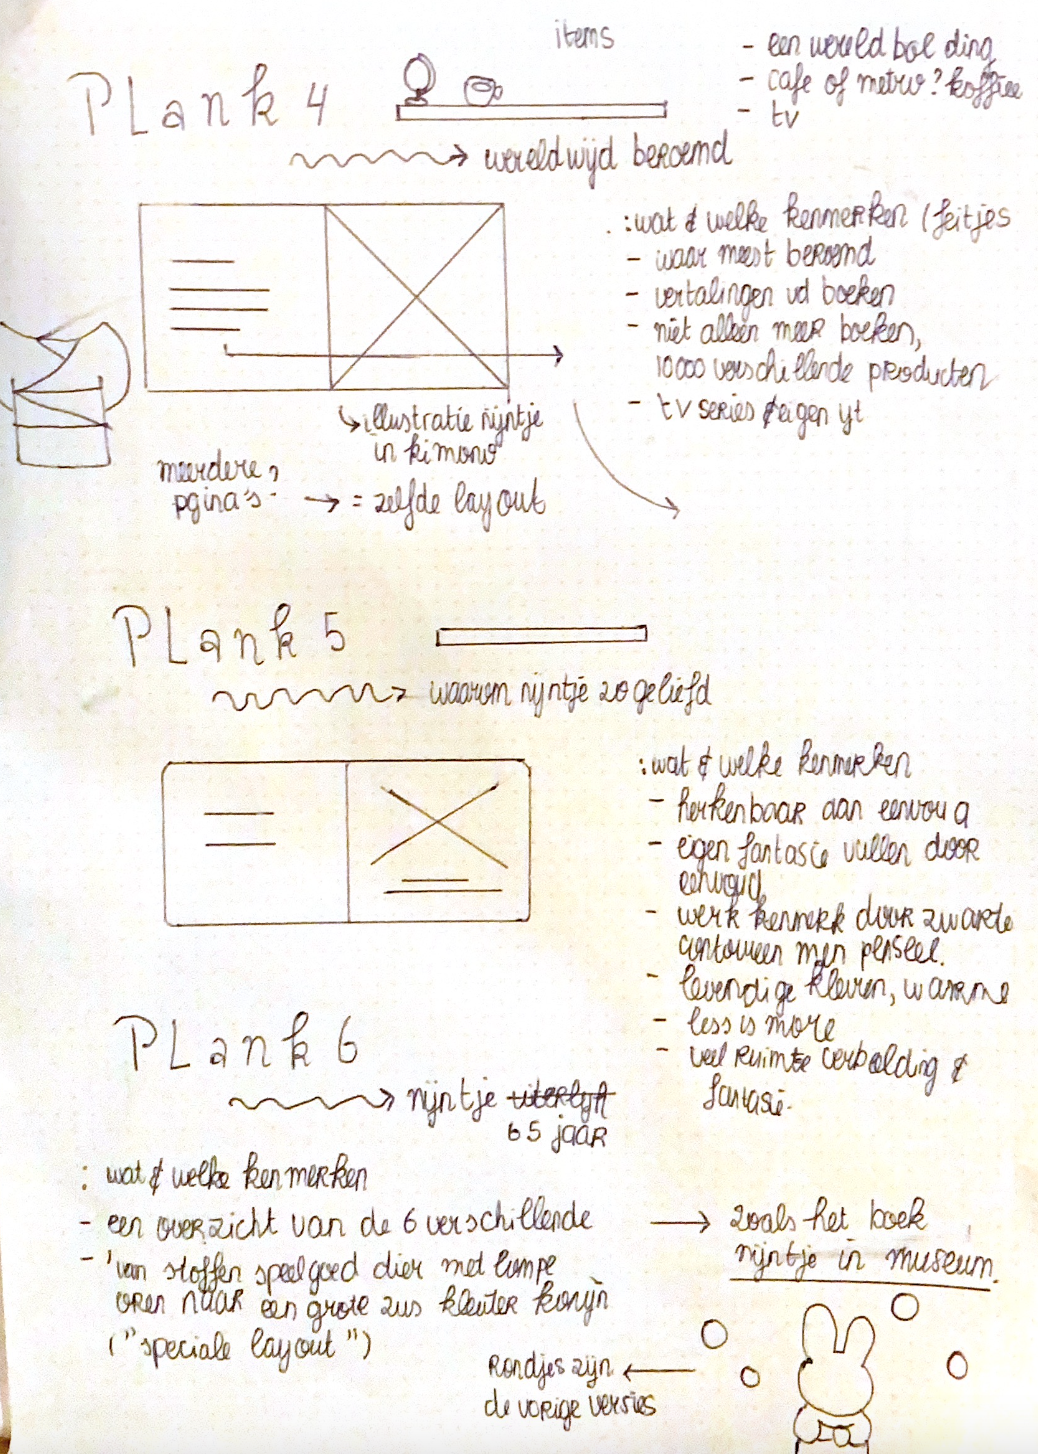 items
- een wereld bol ding
- cafe of metro? koffiee
- tv
PLank 4
wereldwijd beroemd
: wat & welke kenmerken (feitjes
- waar meest beroemd
- vertalingen vd boeken
- niet alleen meer boeken,
10000 verschillende producten
- tv series & eigen yt
illustratie nijntje
in kimono
meerdere
pgina's
= zelfde layout
PLank 5
waarom nijntje zo geliefd
: wat & welke kenmerken
- herkenbaar aan eenvou
- eigen fantasie vullen door
eenvoud
- werk kenmerk door zwarte
penseel.
- levendige kleuren, warme
- less is more
- veel ruimte verbolding &
fantasie.
PLank 6
nijntje
65 jaar
: wat & welke kenmerken
- een overzicht van de 6 verschillende
- 'van stoffen speelgoed dier met lompe
oren naar een grote zus kleuter konijn
("speciale layout")
zoals het boek
nijntje in museum.
Rondjes zijn
de vorige versies